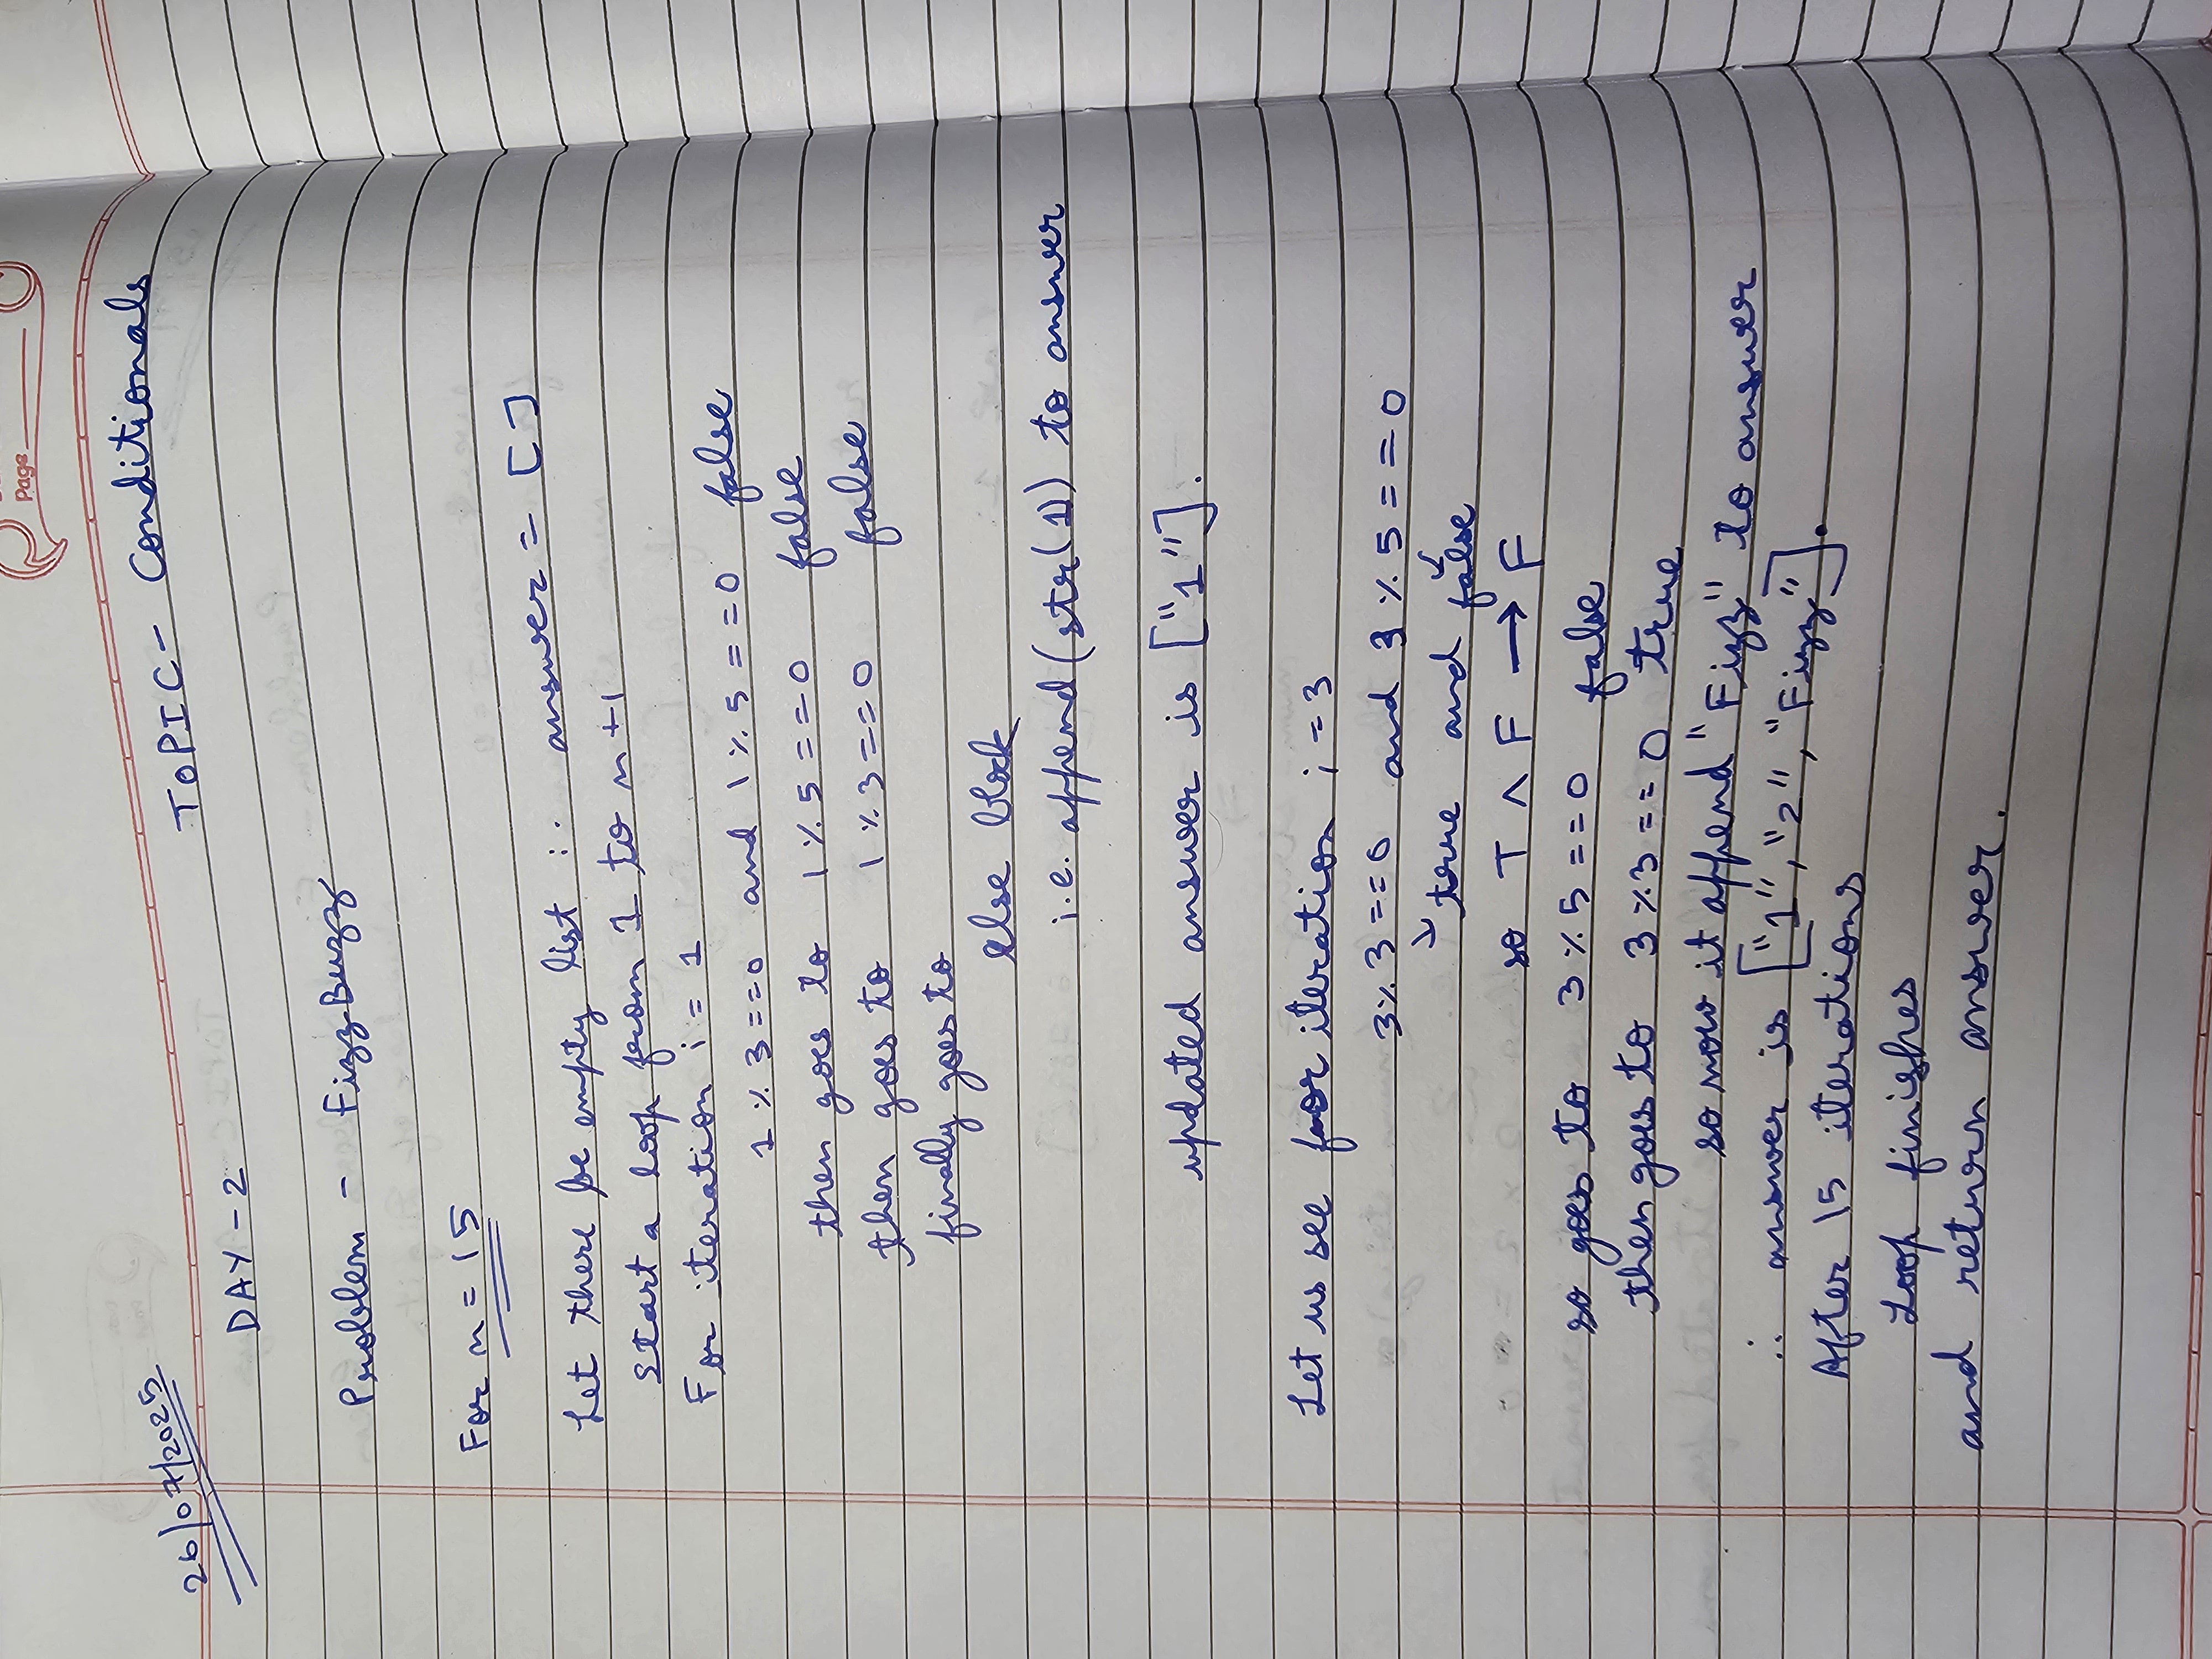 Page
26/07/2025
TOPIC - Conditionals
DAY - 2
Problem - FizzBuzz
For n = 15
Let there be empty list ∴ answer = []
Start a loop from 1 to n+1
For iteration i = 1
1 % 3 == 0 and 1 % 5 == 0 false
then goes to 1 % 5 == 0 false
then goes to 1 % 3 == 0 false
finally goes to
else block
i.e. append(str(1)) to answer
updated answer is ["1"].
Let us see for iteration i = 3
3 % 3 == 0 and 3 % 5 == 0
↘ true and ↙ false
so T ∧ F → F
so goes to 3 % 5 == 0 false
then goes to 3 % 3 == 0 true
so now it append "Fizz" to answer
∴ answer is ["1", "2", "Fizz"].
After 15 iterations
Loop finishes
and return answer.